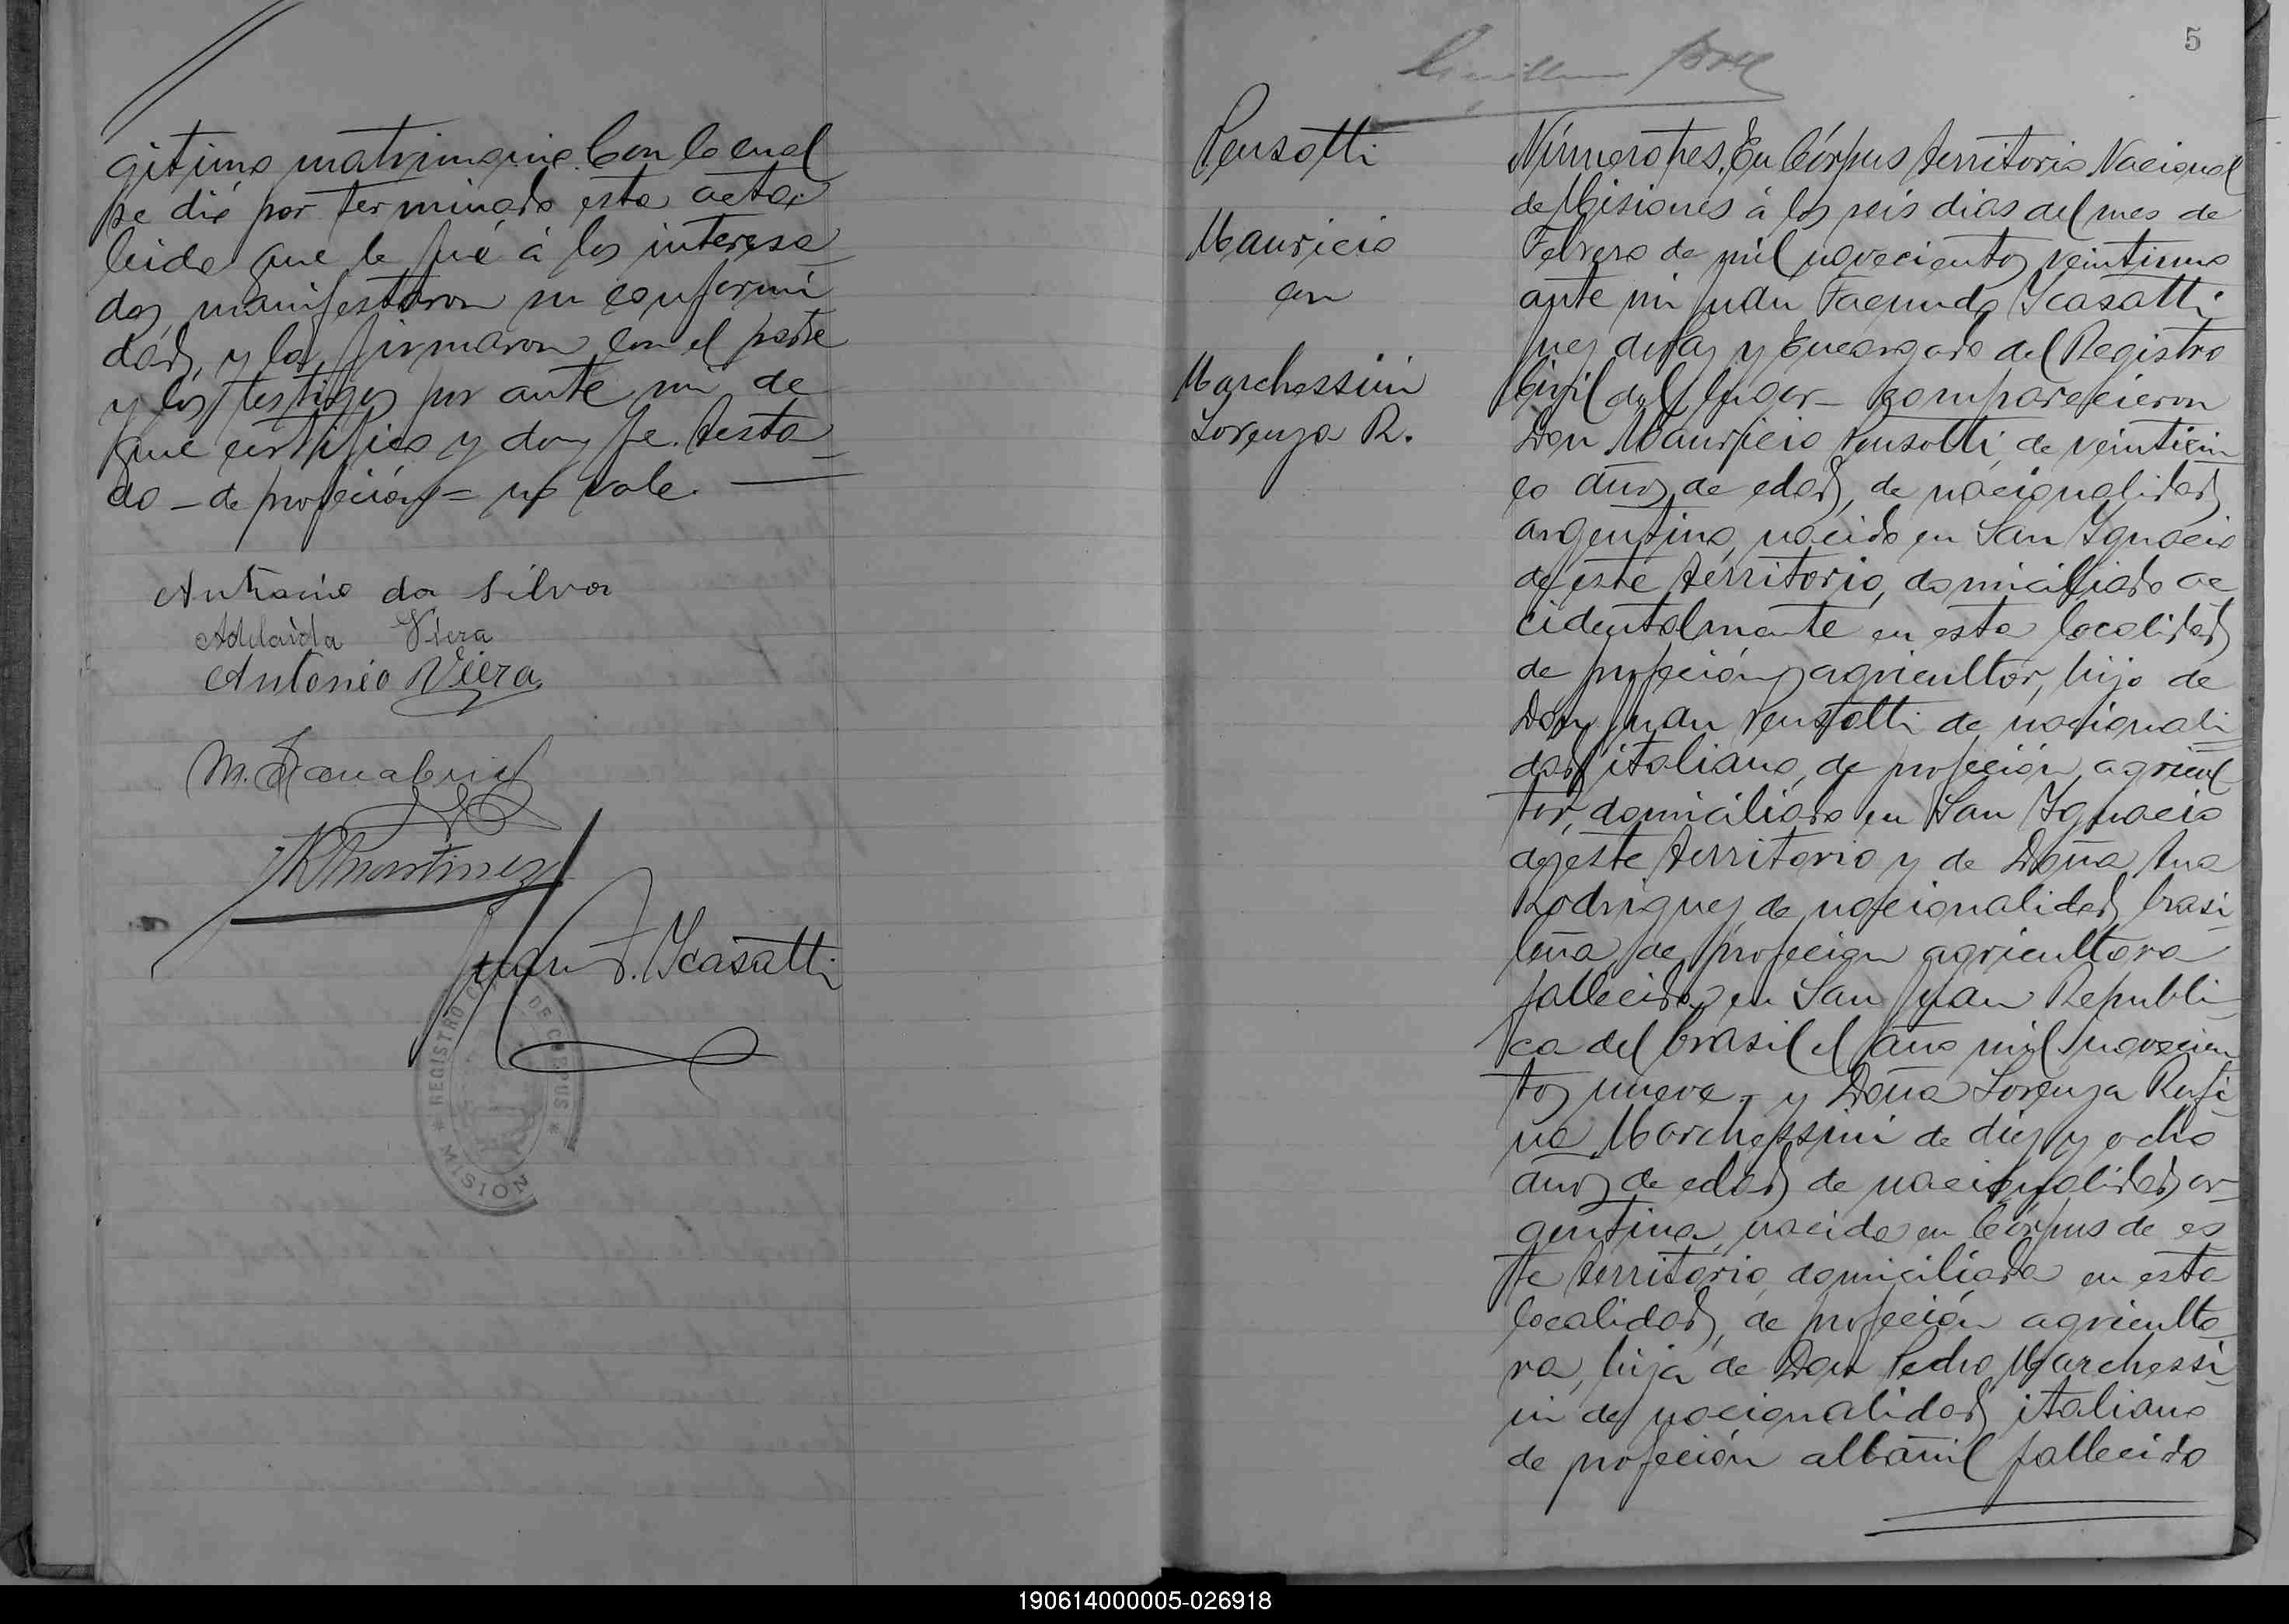 gitimo matrimonio. Con lo cual
se dió por terminado esta acta
leida que le fué á los interesa
dos, manifestaron su conformi
dad, y la firmaron con el padre
y los testigos por ante mi de
que certifico y doy fe. Testa
do - de profeción = no vale.
Antonio da Silva
Adelaida Viera
Antonio Viera
M. Sanabria
Martinez
Juan F. Icasatti
REGISTRO CIVIL DE CORPUS * MISIONES *
5
Pensotti
Mauricio
con
Marchessini
Lorenza R.
Número tres. En Córpus territorio Nacional
de Misiones á los seis dias del mes de
Febrero de mil novecientos veintiuno
ante mi Juan Facundo Icasatti
Juez de Paz y Encargado del Registro
Civil del lugar - comparecieron
Don Mauricio Pensotti, de veinticin
co años de edad, de nacionalidad
argentino, nacido en San Ignacio
de este territorio, domiciliado ac
cidentalmente en esta localidad
de profeción agricultor, hijo de
Don Juan Pensotti de nacionali
dad italiano, de profeción agricul
tor, domiciliado en San Ignacio
de este territorio y de Doña Ana
Rodriguez de nacionalidad brasi
leña de profecion agricultora
fallecida en San Juan Republi
ca del Brasil el año mil novecien
tos nueve. y Doña Lorenza Rufi
na Marchessini de diez y ocho
años de edad de nacionalidad ar
gentina, nacida en Córpus de es
te territorio, domiciliada en esta
localidad, de profeción agriculto
ra, hija de Don Pedro Marchessi
ni de nacionalidad italiano
de profeción albañil fallecido
190614000005-026918